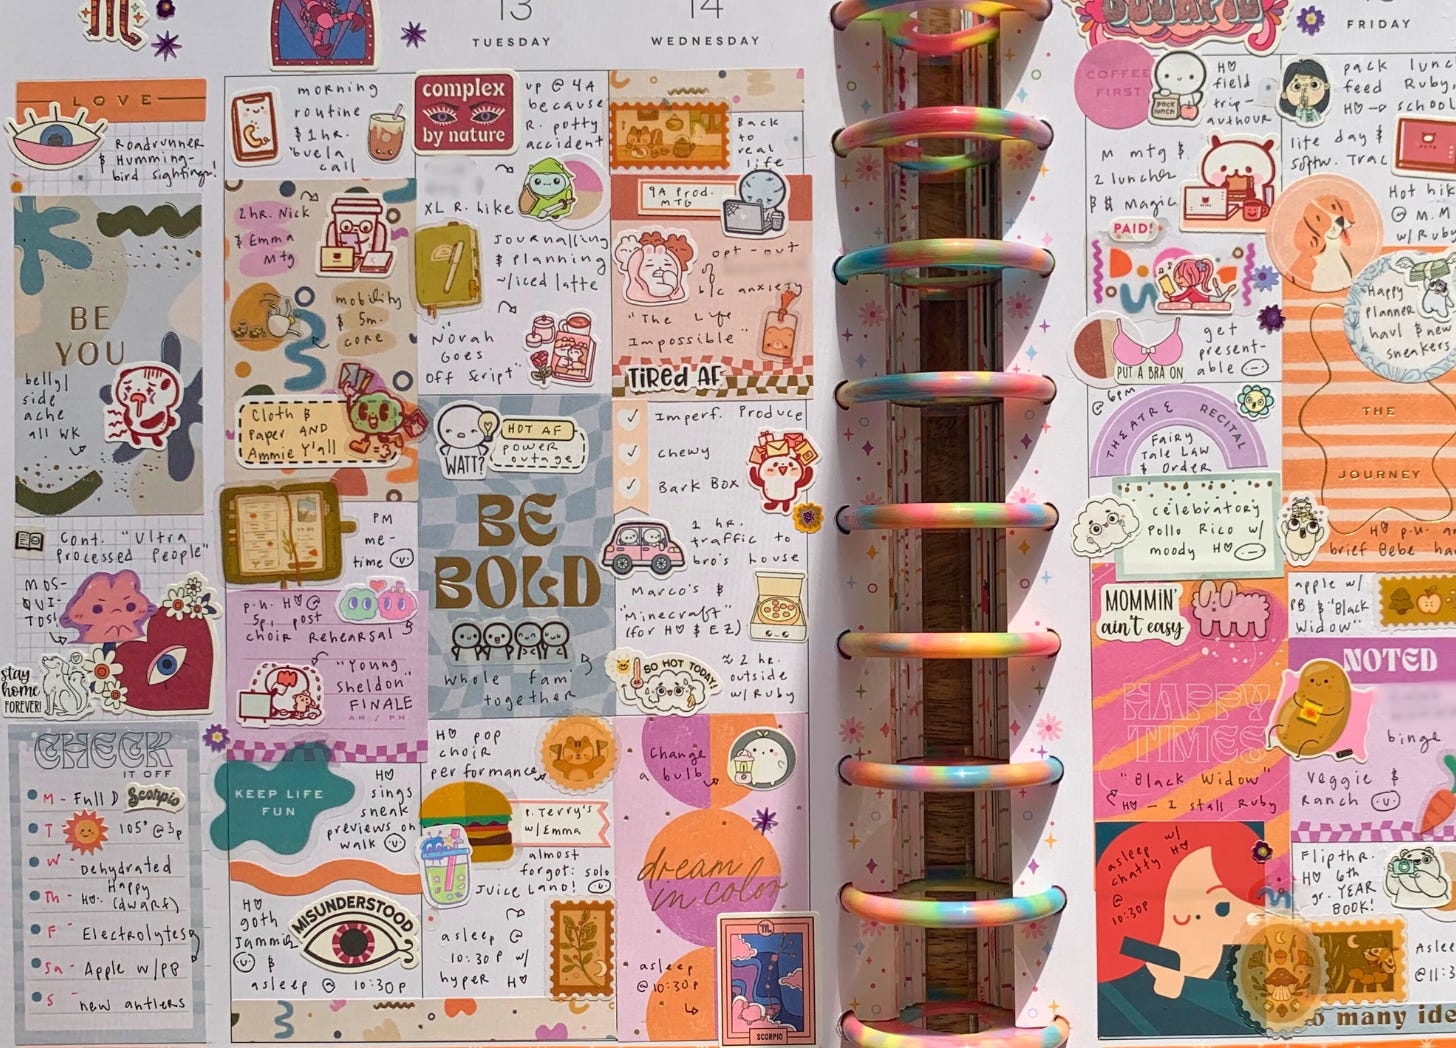 LOVE
Roadrunner
& Humming-
bird sightings!
BE
YOU
belly/
side
ache
all WK
Cont. "Ultra
Processed People"
MOS-
QUI-
TOS!
stay
home
FOREVER!
CHECK
IT OFF
M - Full D Scorpio
T 105° @ 3p
W - Dehydrated
Th - Happy
HO: (dwarf)
F - Electrolytes
Sa - Apple w/PB
S - new antlers
morning
routine
& 1 hr.
'buela
call
2hr. Nick
& Emma
Mtg
mobility
& 5m.
core
Cloth &
Paper AND
Ammie Y'all
PM
me-
time
p.u. H @
5p, post
choir rehearsal
"Young
Sheldon"
FINALE
AM / PM
KEEP LIFE
FUN
H
sings
sneak
previews on
walk
H
goth
Jammies
&
asleep @ 10:30p
MISUNDERSTOOD
13
TUESDAY
complex
by nature
up @ 4A
because
R. potty
accident
XL R. hike
Journalling
& planning
~/iced latte
"Norah
Goes
Off Script"
WATT?
HOT AF
power
outage
BE
BOLD
whole fam
together
H pop
choir
performance
P. Terry's
w/Emma
almost
forgot: solo
Juice Land!
asleep @
10:30p w/
hyper H
14
WEDNESDAY
Back
to
real
life
9A Prod.
MTG
opt-out
of
b/c anxiety
"The Life
Impossible"
TIRED AF
Imperf. Produce
chewy
Bark Box
1 hr.
traffic to
bro's house
Marco's &
"Minecraft"
(for H & EZ)
SO HOT TODAY
≈ 2 hr.
outside
w/Ruby
Change
a bulb
dream
in color
asleep
@10:30p
SCORPIO
SCORPIO
COFFEE
FIRST
pack
lunch
H
field
trip-
authour
M mtg &
2 lunches
B$ Magic
PAID!
PUT A BRA ON
get
present-
able
@ 6pm
THEATRE RECITAL
Fairy
Tale Law
& Order
celebratory
Pollo Rico w/
moody H
MOMMIN'
ain't easy
HAPPY
TIMES
"Black Widow"
H - I stall Ruby
asleep w/
chatty H
@
10:30p
FRIDAY
pack lunch
feed Ruby,
H → school
lite day &
softw. Trac
Hot hik
@ M.M
w/Ruby
Happy
Planner
haul & new
sneakers
THE
JOURNEY
H p.u.
brief Bebe
apple w/
PB & "Black
Widow"
NOTED
binge
veggie &
Ranch
Flipthr.
H 6th
gr. YEAR
BOOK!
Aslee
@11:3
so many ide